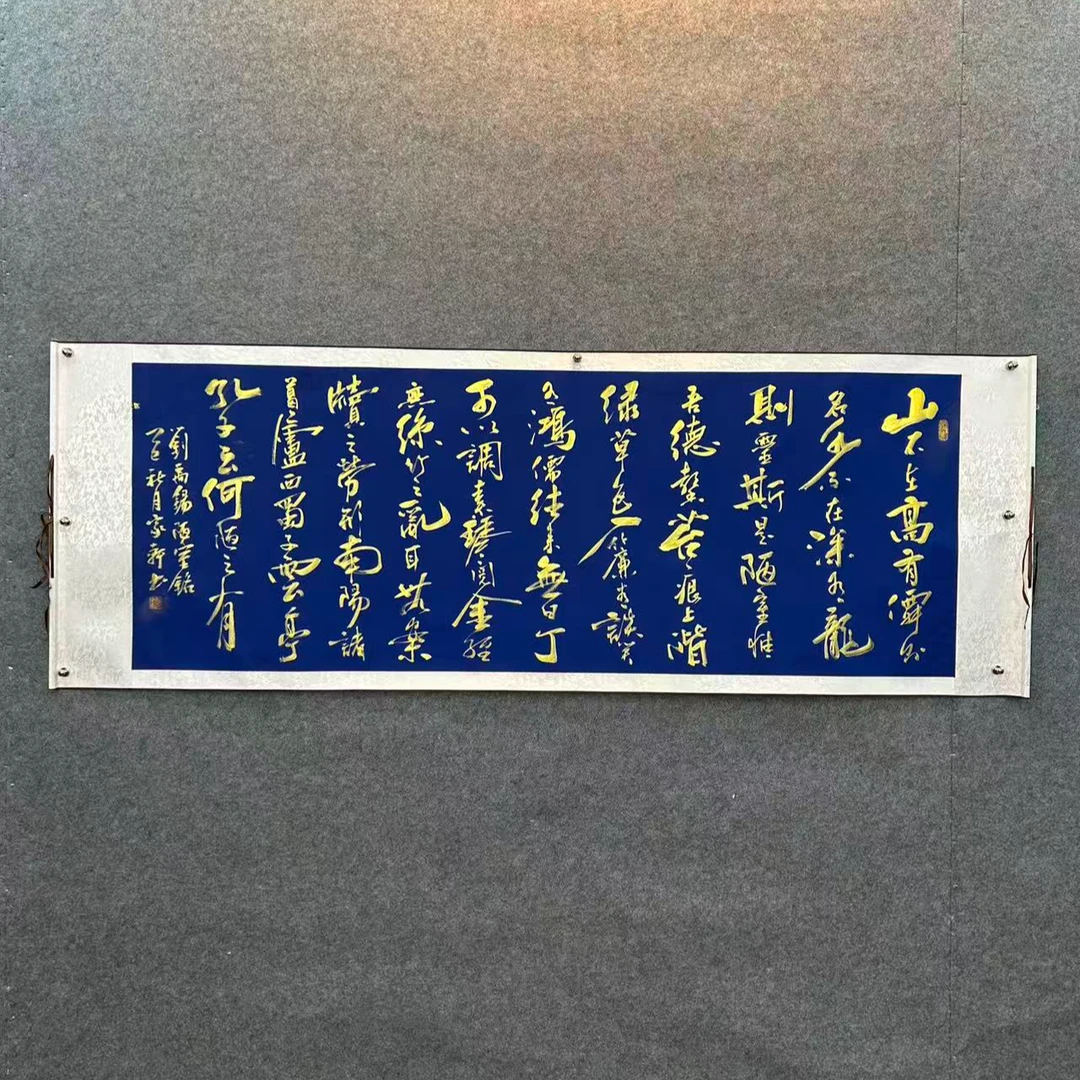 山不在高有僊則
名水不在深有龍
則靈斯是陋室惟
吾德馨苔痕上階
緑草色入簾青談笑
有鴻儒往来無白丁
可以調素琴閲金經
無絲竹之亂耳無案
牘之勞形南陽諸
葛廬西蜀子雲亭
孔子云何陋之有
劉禹錫陋室銘
秋月家軒書